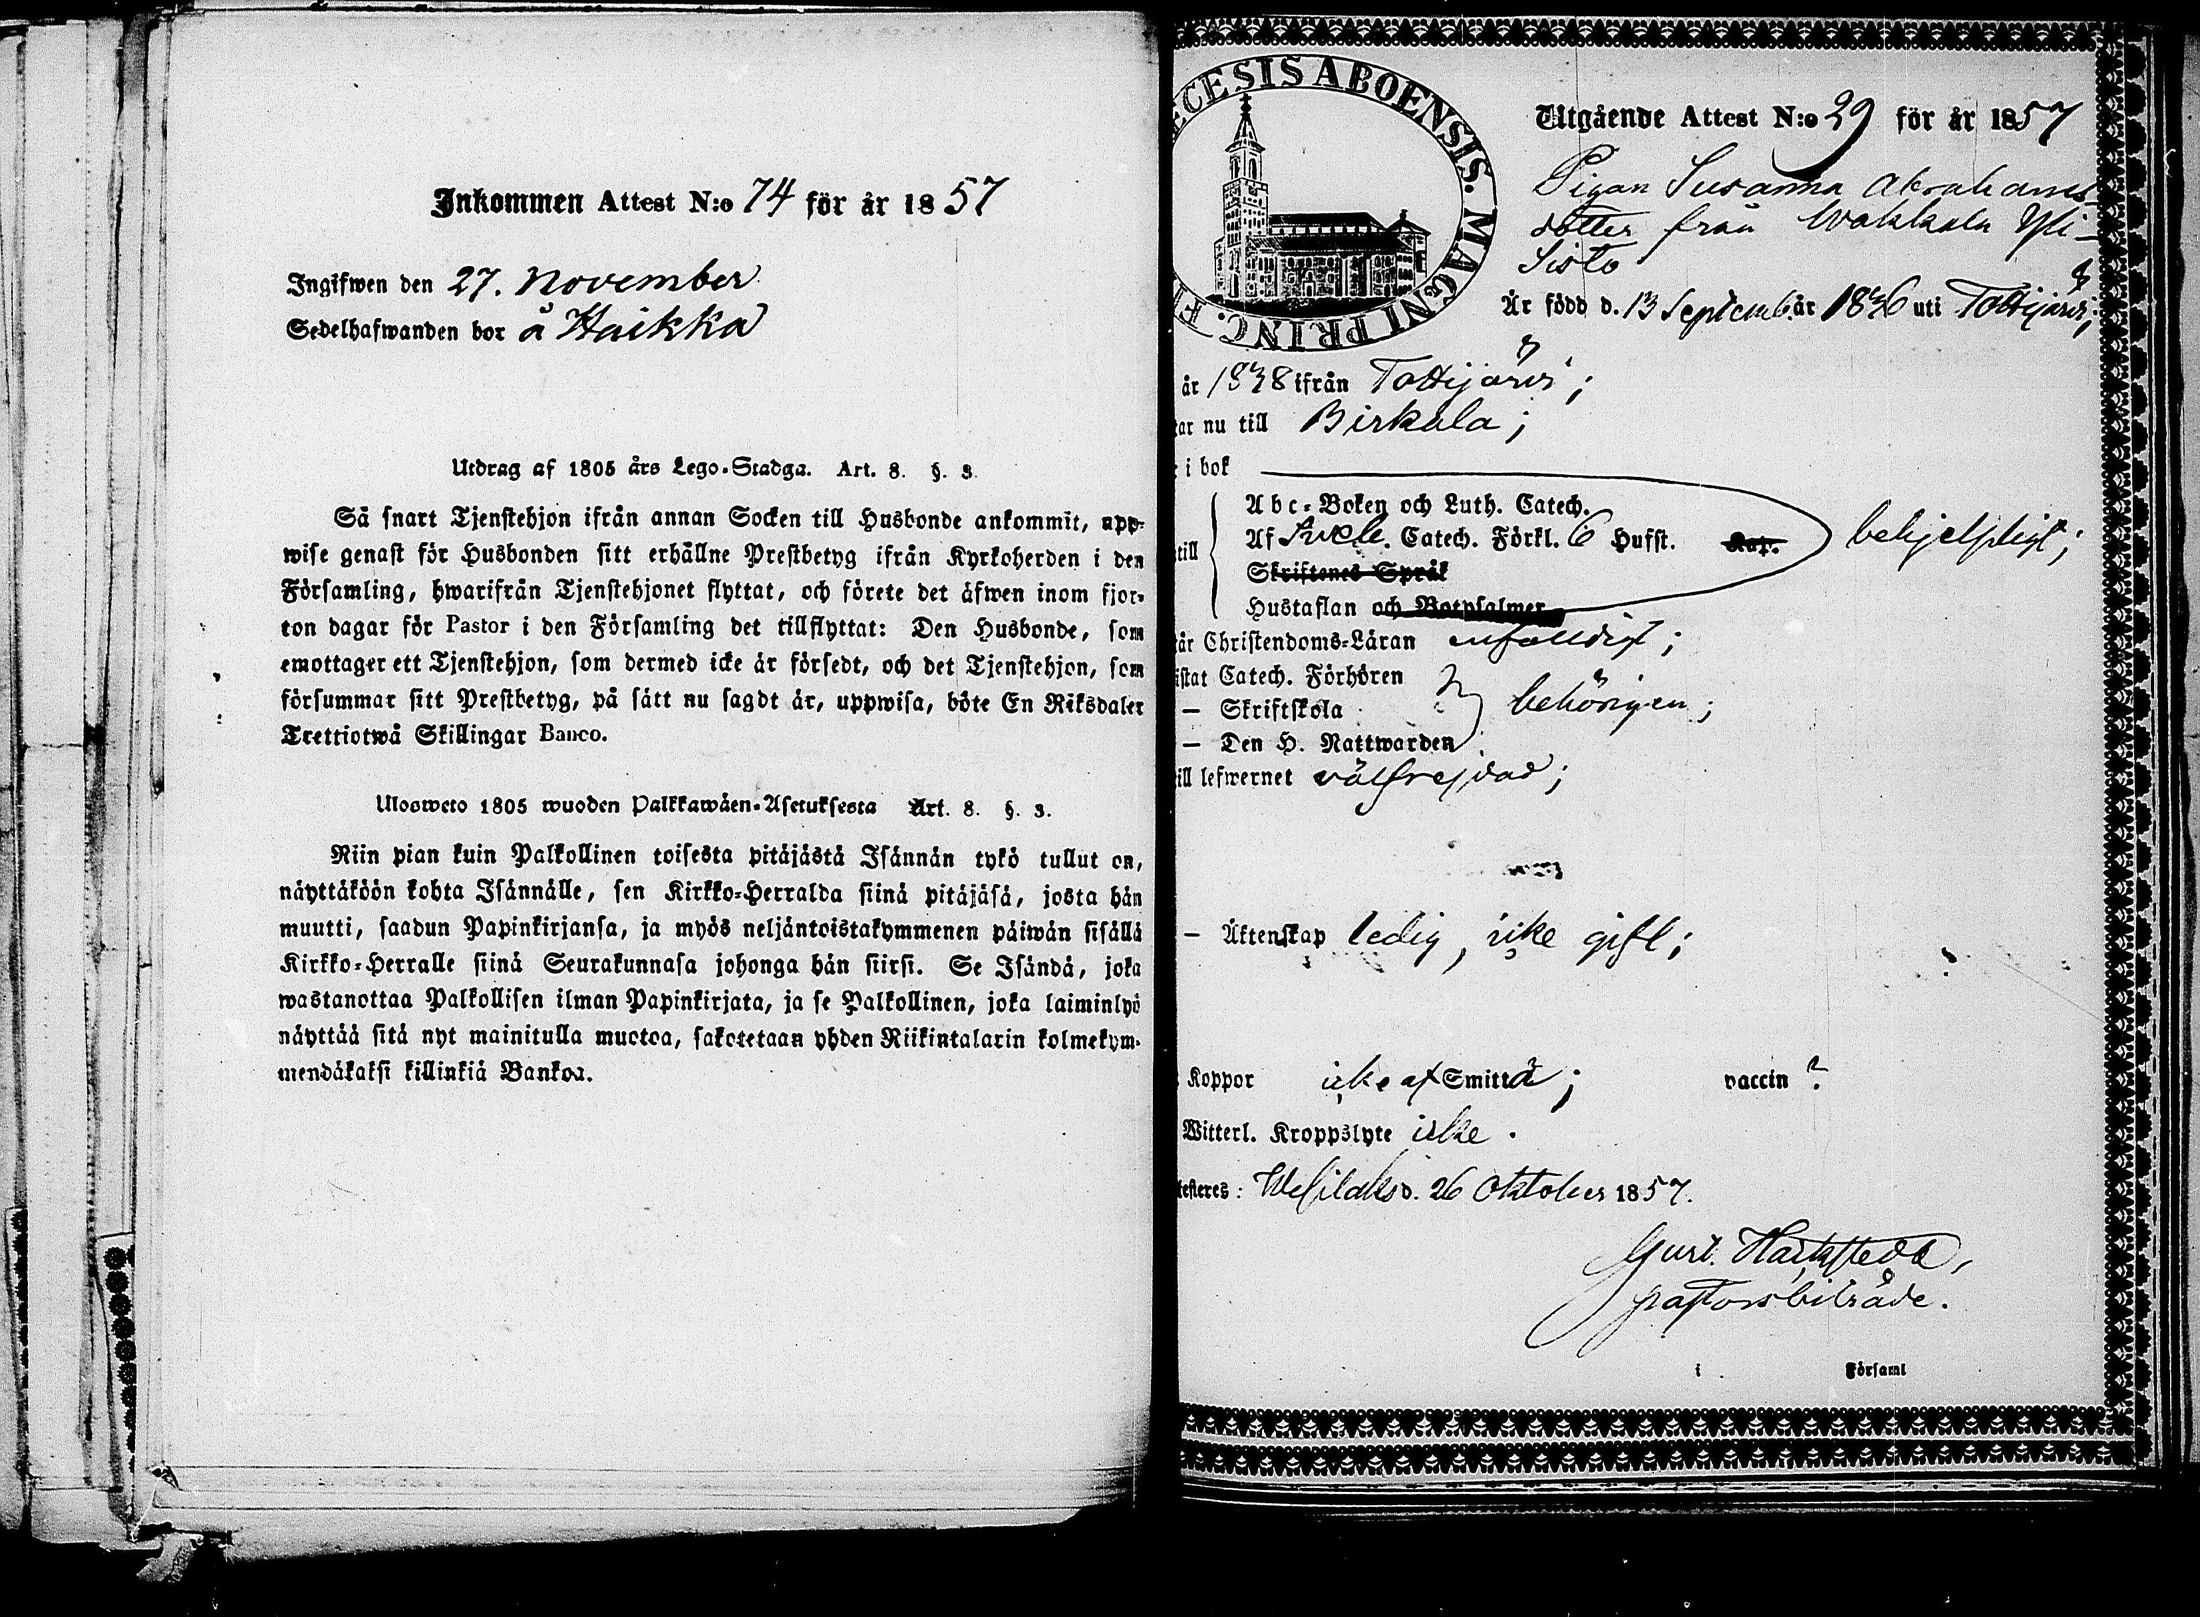 Inkommen Attest N:o 74 för år 1857
Ingifwen den 27. November
Sedelhafwanden bor å Haikka
Utdrag af 1805 års Lego-Stadga. Art. 8. §. 3.
Så snart Tjenstehjon ifrån annan Socken till Husbonde ankommit, upp-
wise genast för Husbonden sitt erhållne Prestbetyg ifrån Kyrkoherden i den
Församling, hwarifrån Tjenstehjonet flyttat, och förete det äfwen inom fjor-
ton dagar för Pastor i den Församling det tillflyttat: Den Husbonde, som
emottager ett Tjenstehjon, som dermed icke är försedt, och det Tjenstehjon, som
försummar sitt Prestbetyg, på sätt nu sagdt är, uppwisa, böte En Riksdaler
Trettiotwå Skillingar Banco.
Ulosweto 1805 wuoden Palkkawäen-Asetuksesta Art. 8. §. 3.
Niin pian kuin Palkollinen toisesta pitäjästä Isännän tykö tullut on,
näyttäköön kohta Isännälle, sen Kirkko-Herralda siinä pitäjäsä, josta hän
muutti, saadun Papinkirjansa, ja myös neljäntoistakymmenen päiwän sisällä
Kirkko-Herralle siinä Seurakunnasa johonga hän siirsi. Se Isändä, joka
wastanottaa Palkollisen ilman Papinkirjata, ja se Palkollinen, joka laiminlyö
näyttää sitä nyt mainitulla muotoa, sakotetaan yhden Riikintalarin kolmekym-
mendäkaksi killinkiä Bankoa.
ECESIS ABOENSIS. MAGNI PRINC. F
Utgående Attest N:o 29 för år 1857
Pigan Susanna Abrahams
dotter från Wakkala Yli-
Sisto
Är född d. 13 Septemb. år 1836 uti Tottijärvi;
år 1838 ifrån Tottijärvi;
ar nu till Birkala;
i bok
Abc-Boken och Luth. Catech.
till Af Svebe. Catech. Förkl. 6 Hufst. Kap. behjelpligt;
Skriftenes Språk
Hustaflan och Botpsalmer
år Christendoms-Läran enfaldigt;
istat Catech. Förhören
— Skriftskola behörigen;
— Den H. Nattwarden
ill lefwernet välfrejdad;
— Äktenskap ledig, icke gift;
Koppor icke af Smittä; vaccin ?
Witterl. Kroppslyte icke.
testeres: Wesilaks d. 26 Oktober 1857.
Gust.
pastorsbiträde.
i Församl